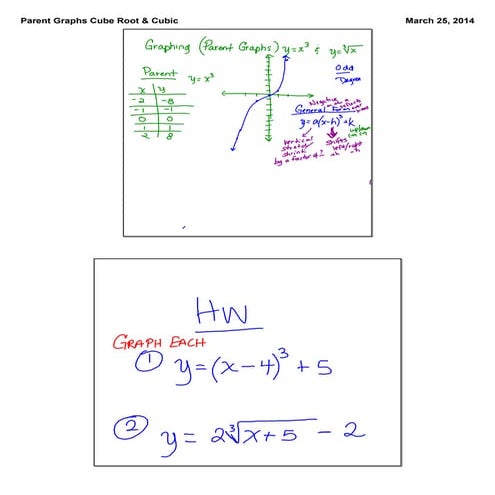 Parent Graphs Cube Root & Cubic March 25, 2014
Graphing (Parent Graphs) y=x³ & y=∛x
Parent y=x³
x y
-2 -8
-1 -1
0 0
1 1
2 8
Odd
Degree
Negative
General Form
y=a(x-h)³+k
Vertical
stretch
shrink
by a factor of
Shifts
left/right
HW
GRAPH EACH
① y=(x-4)³+5
② y = 2∛x+5 - 2